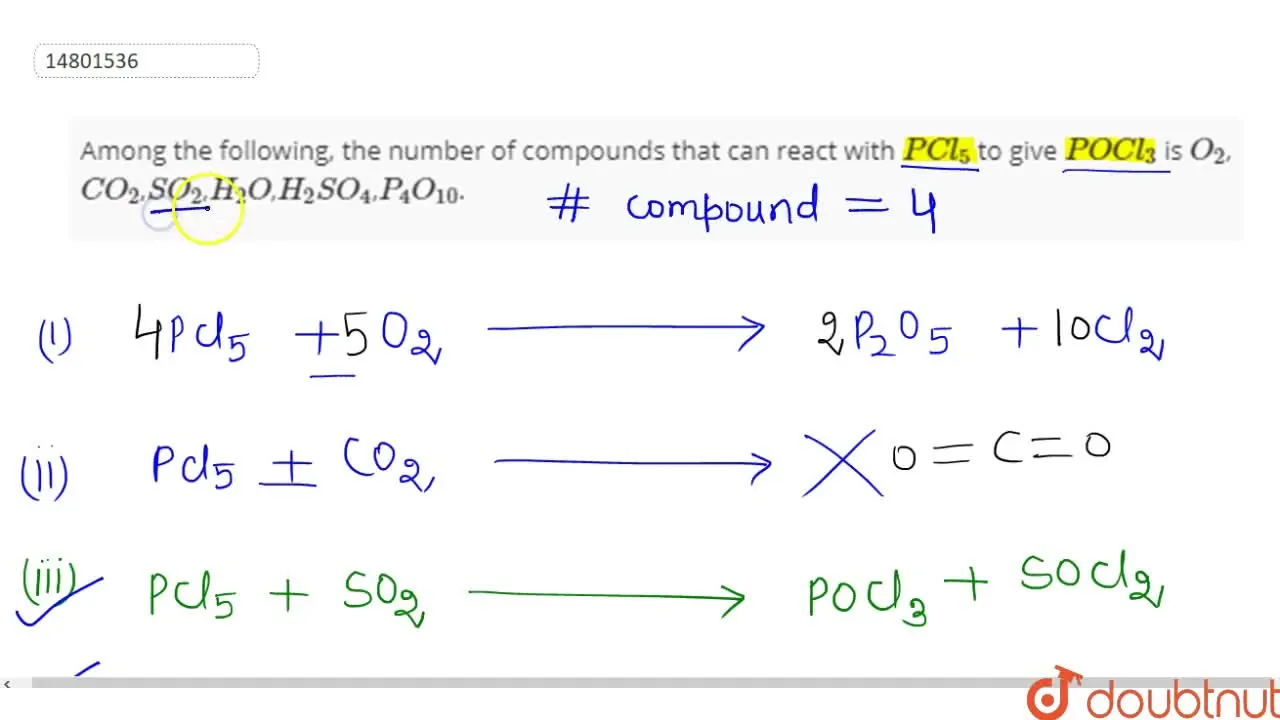 14801536
Among the following, the number of compounds that can react with PCl₅ to give POCl₃ is O₂,
CO₂,SO₂,H₂O,H₂SO₄,P₄O₁₀.
# compound = 4
(i) 4PCl₅ + 5O₂ ⟶ 2P₂O₅ + 10Cl₂
(ii) PCl₅ + CO₂ ⟶ X O=C=O
(iii) PCl₅ + SO₂ ⟶ POCl₃ + SOCl₂
doubtnut